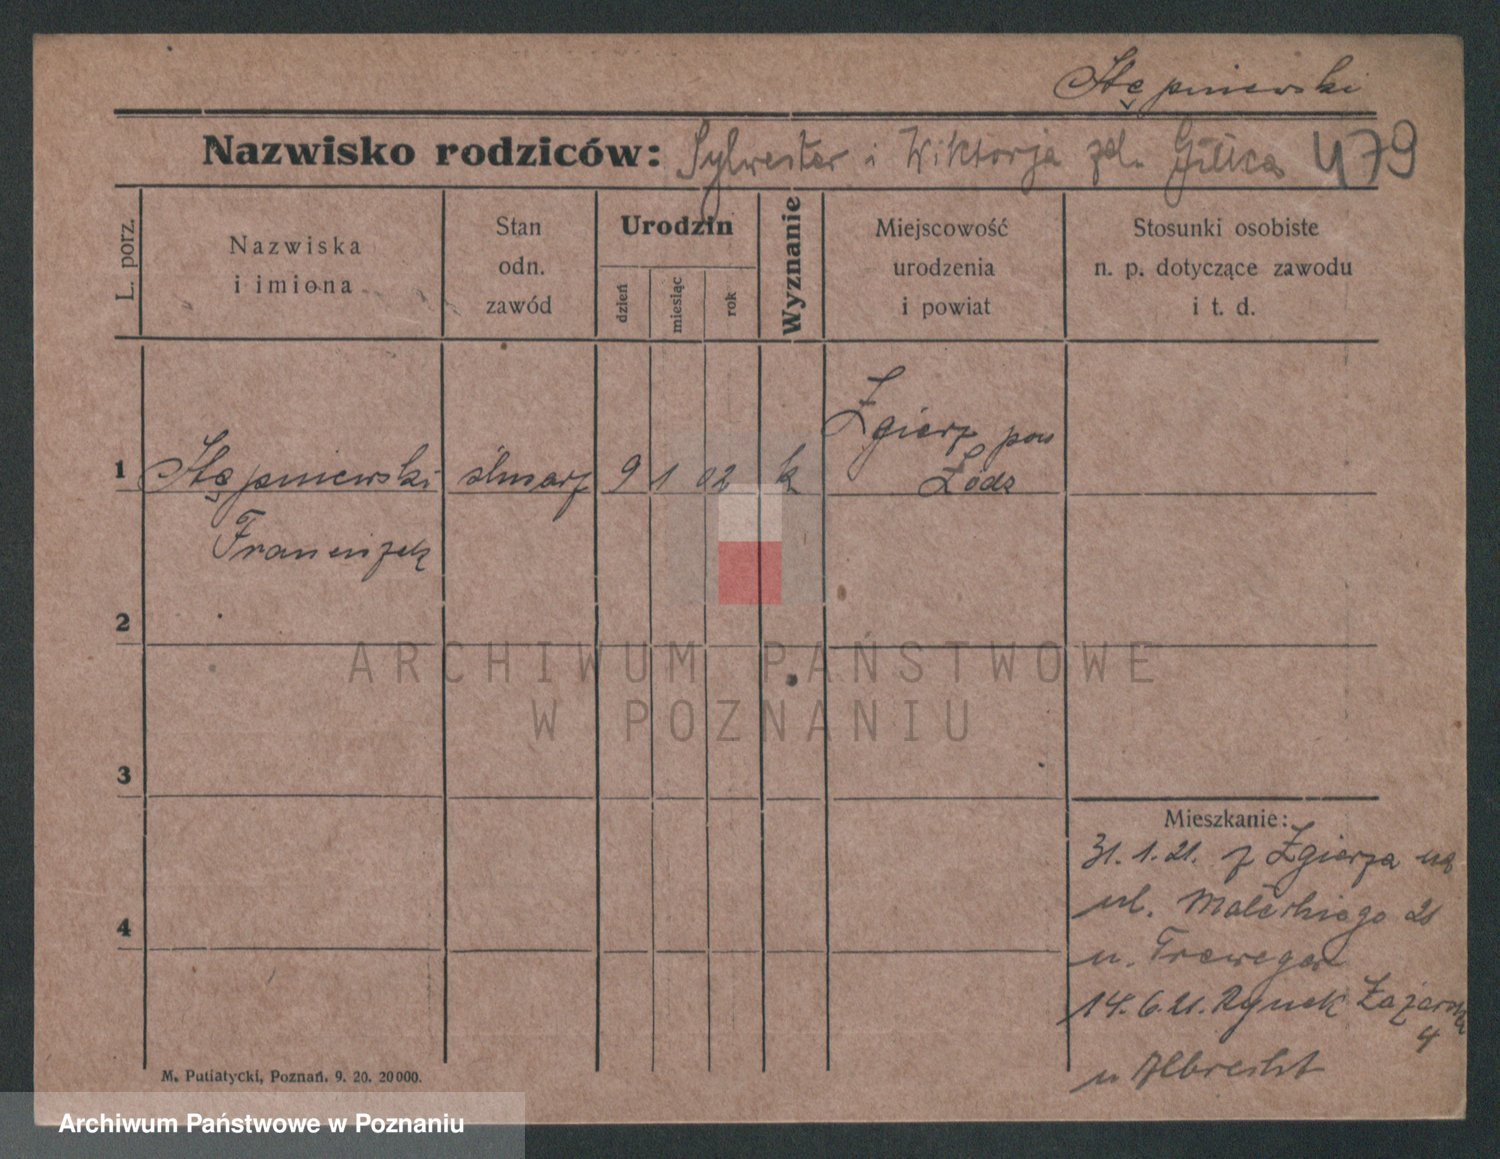 Stępniewski
Nazwisko rodziców: Sylwester i Wiktorja 479
L. porz.
Nazwiska
i imiona
Stan
odn.
zawód
Urodzin
dzień
miesiąc
rok
Wyznanie
Miejscowość
urodzenia
i powiat
Stosunki osobiste
n. p. dotyczące zawodu
i t. d.
1 Stępniewski ślusarz 9 1 02 k
Zgierz pow
Łódz
Franciszek
2
3
4
ARCHIWUM PAŃSTWOWE
W POZNANIU
Mieszkanie:
31.1.21. z Zgierza na
ul. Małeckiego 21
u.
14.6.21. Rynek Łazarski
4
u Albrecht
M. Putiatycki, Poznań. 9. 20. 20000.
Archiwum Państwowe w Poznaniu